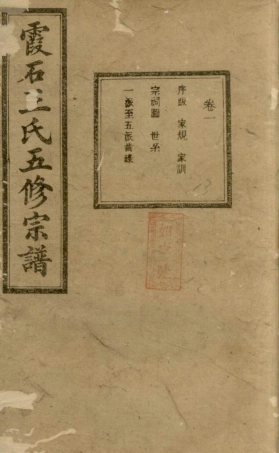 霞石王氏五修宗譜
卷一
序跋 家規 家訓
宗祠圖 世系
一派至五派齒錄